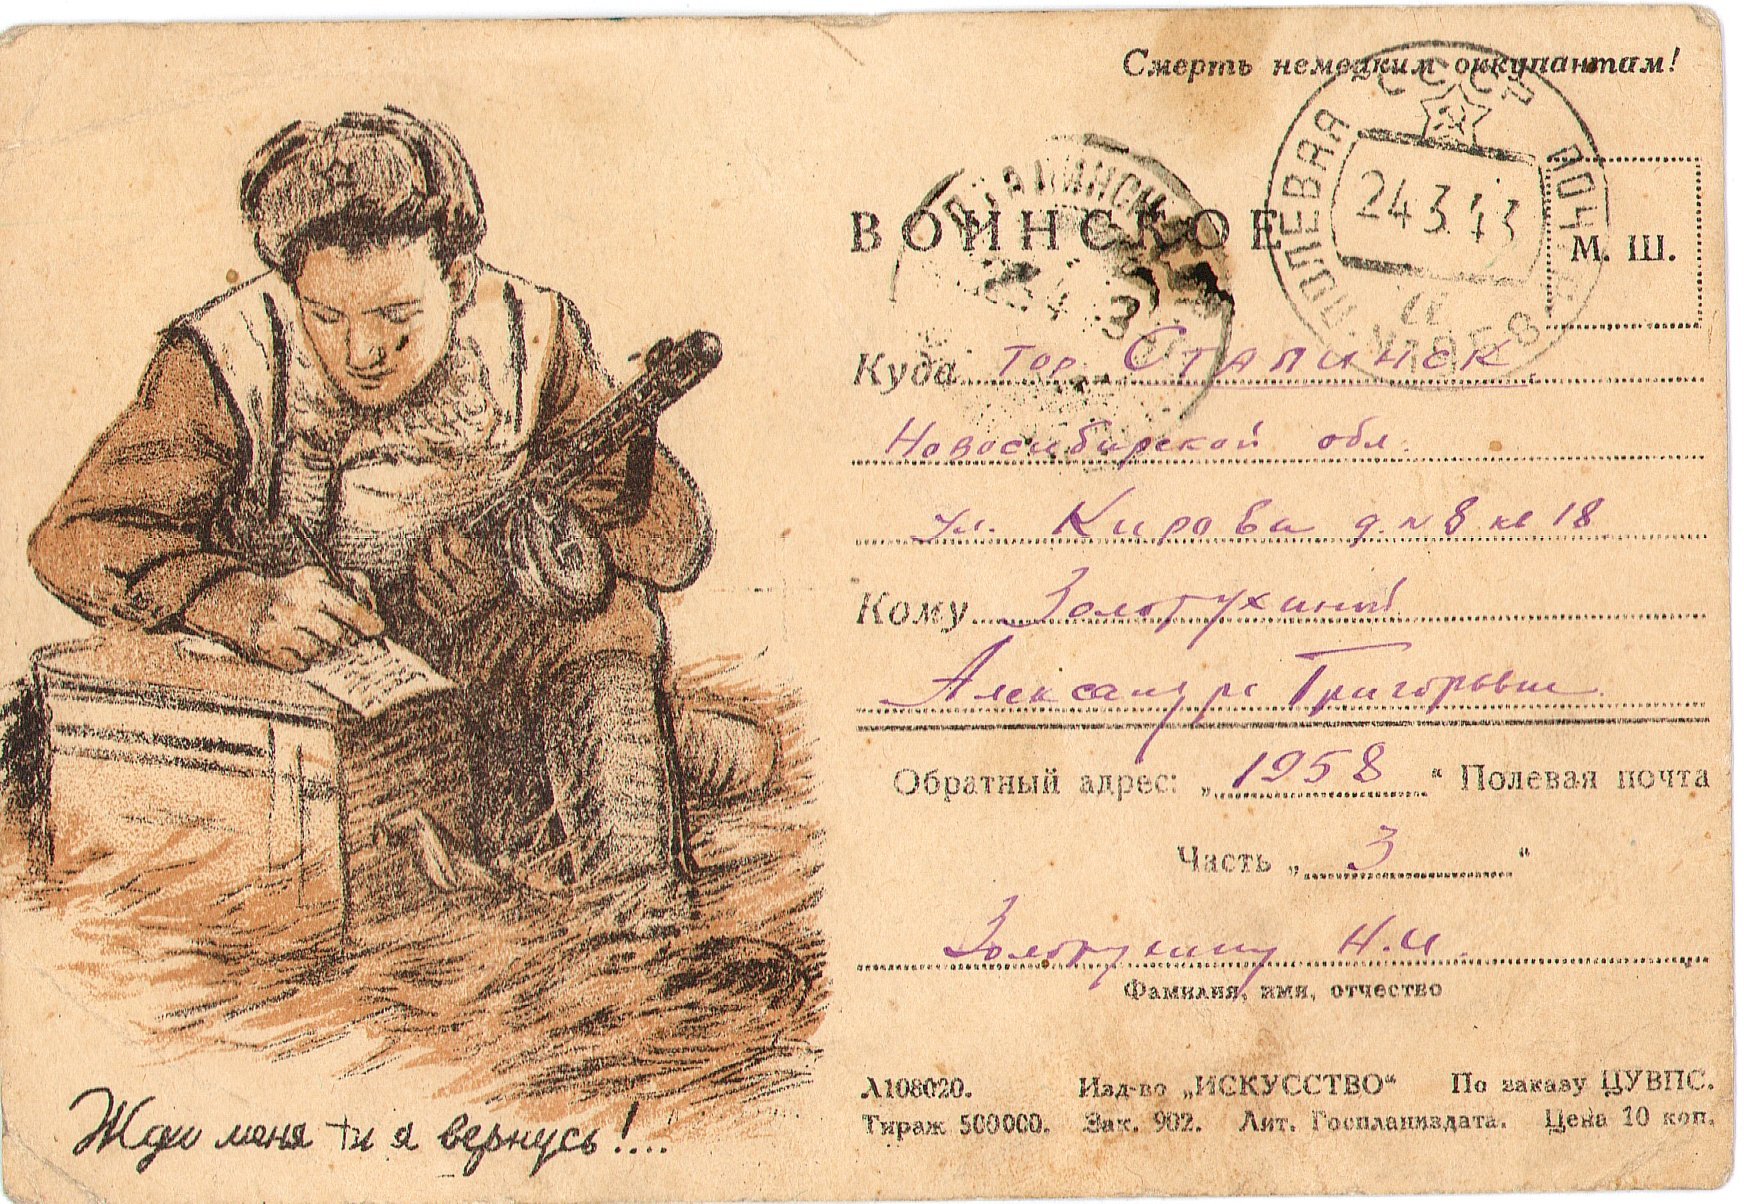 Смерть немецким оккупантам!
ПОЛЕВАЯ ПОЧТА
СССР
24.3.43
ВОИНСКОЕ
М. Ш.
Куда гор Сталинск
Новосибирской обл.
ул. Кирова д. № 8 кв 18
Кому Золотухиной
Александре Григорьевне
Обратный адрес: „1958“ Полевая почта
Часть „3“
Золотухину Н.И.
Фамилия, имя, отчество
Жди меня и я вернусь!...
Л108020. Изд-во „ИСКУССТВО“ По заказу ЦУВПС.
Тираж 500000. Зак. 902. Лит. Госпланиздата. Цена 10 коп.